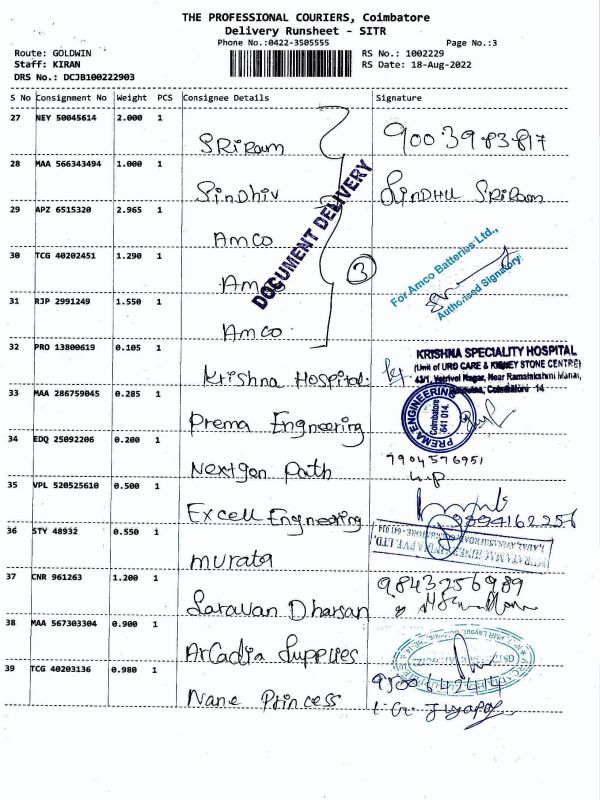 THE PROFESSIONAL COURIERS, Coimbatore
Delivery Runsheet - SITR
Phone No.:0422-3505555 Page No.:3
Route: GOLDWIN RS No.: 1002229
Staff: KIRAN RS Date: 18-Aug-2022
DRS No.: DCJB100222903
S No Consignment No Weight PCS Consignee Details Signature
27 NEY 50045614 2.000 1
SRiRam 9003983817
28 MAA 566343494 1.000 1
Sindhiv SINDHU SRIRam
DOCUMENT DELIVERY
29 APZ 6515320 2.965 1
AmCO
For Amco Batteries Ltd.,
30 TCG 40202451 1.290 1
3
Authorised Signatory
31 RJP 2991249 1.550 1
AmCO
32 PRO 13800619 0.105 1
KRISHNA SPECIALITY HOSPITAL
(Unit of URO CARE & KIDNEY STONE CENTRE)
43/1, Vetrivel Nagar, Near Ramalakshmi Mahal,
Coimbatore - 14
Krishna Hospital
33 MAA 286759045 0.285 1
PREMA ENGINEERING
Coimbatore
641 014.
Prema Engneering
34 EDQ 25092206 0.200 1
7904576951
Nextgen Path
35 VPL 520525610 0.500 1
Excell Engneering 9894162256
36 STY 48932 0.550 1
murata
37 CNR 961263 1.200 1
9843256989
Saravan Dharsan
38 MAA 567303304 0.900 1
Arcadia Supplies
39 TCG 40203136 0.980 1
9500642414
Nane Princess